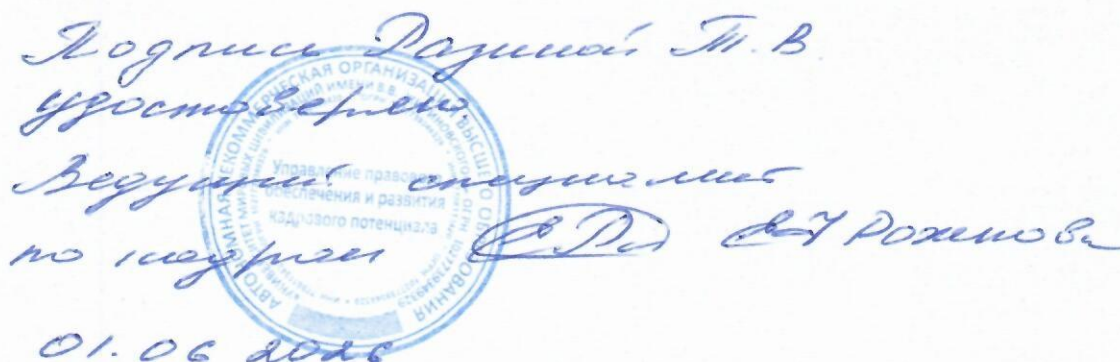 Подпись Разиной Т.В
удостоверяю.
Ведущий специалист
по кадрам Е.И Рожкова
01.06 2026
АВТОНОМНАЯ НЕКОММЕРЧЕСКАЯ ОРГАНИЗАЦИЯ ВЫСШЕГО ОБРАЗОВАНИЯ
Управление правового
обеспечения и развития
кадрового потенциала